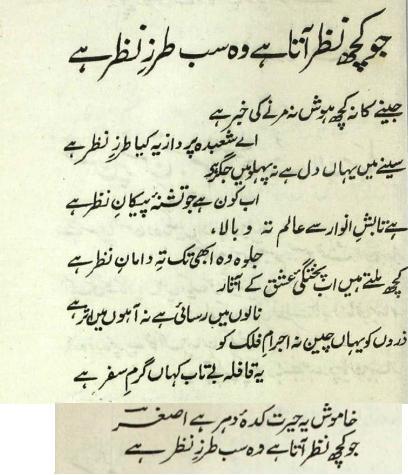 جو کچھ نظر آتا ہے وہ سب طرزِ نظر ہے
جینے کا نہ کچھ ہوش نہ مرنے کی خبر ہے
اے شعبدہ پرداز یہ کیا طرزِ نظر ہے
سینے میں یہاں دل ہے نہ پہلو میں جگر ہے
اب کون ہے جو تشنۂ پیکانِ نظر ہے
ہے تابشِ انوار سے عالم تہ و بالا،
جلوہ وہ ابھی تک تہِ دامانِ نظر ہے
کچھ ملتے ہیں اب پختگیِ عشق کے آثار
نالوں میں رسائی ہے نہ آہوں میں اثر ہے
ذروں کو یہاں چین نہ اجرامِ فلک کو
یہ قافلہ بے تاب کہاں گرمِ سفر ہے
خاموش یہ حیرت کدۂ دہر ہے اصغر
جو کچھ نظر آتا ہے وہ سب طرزِ نظر ہے